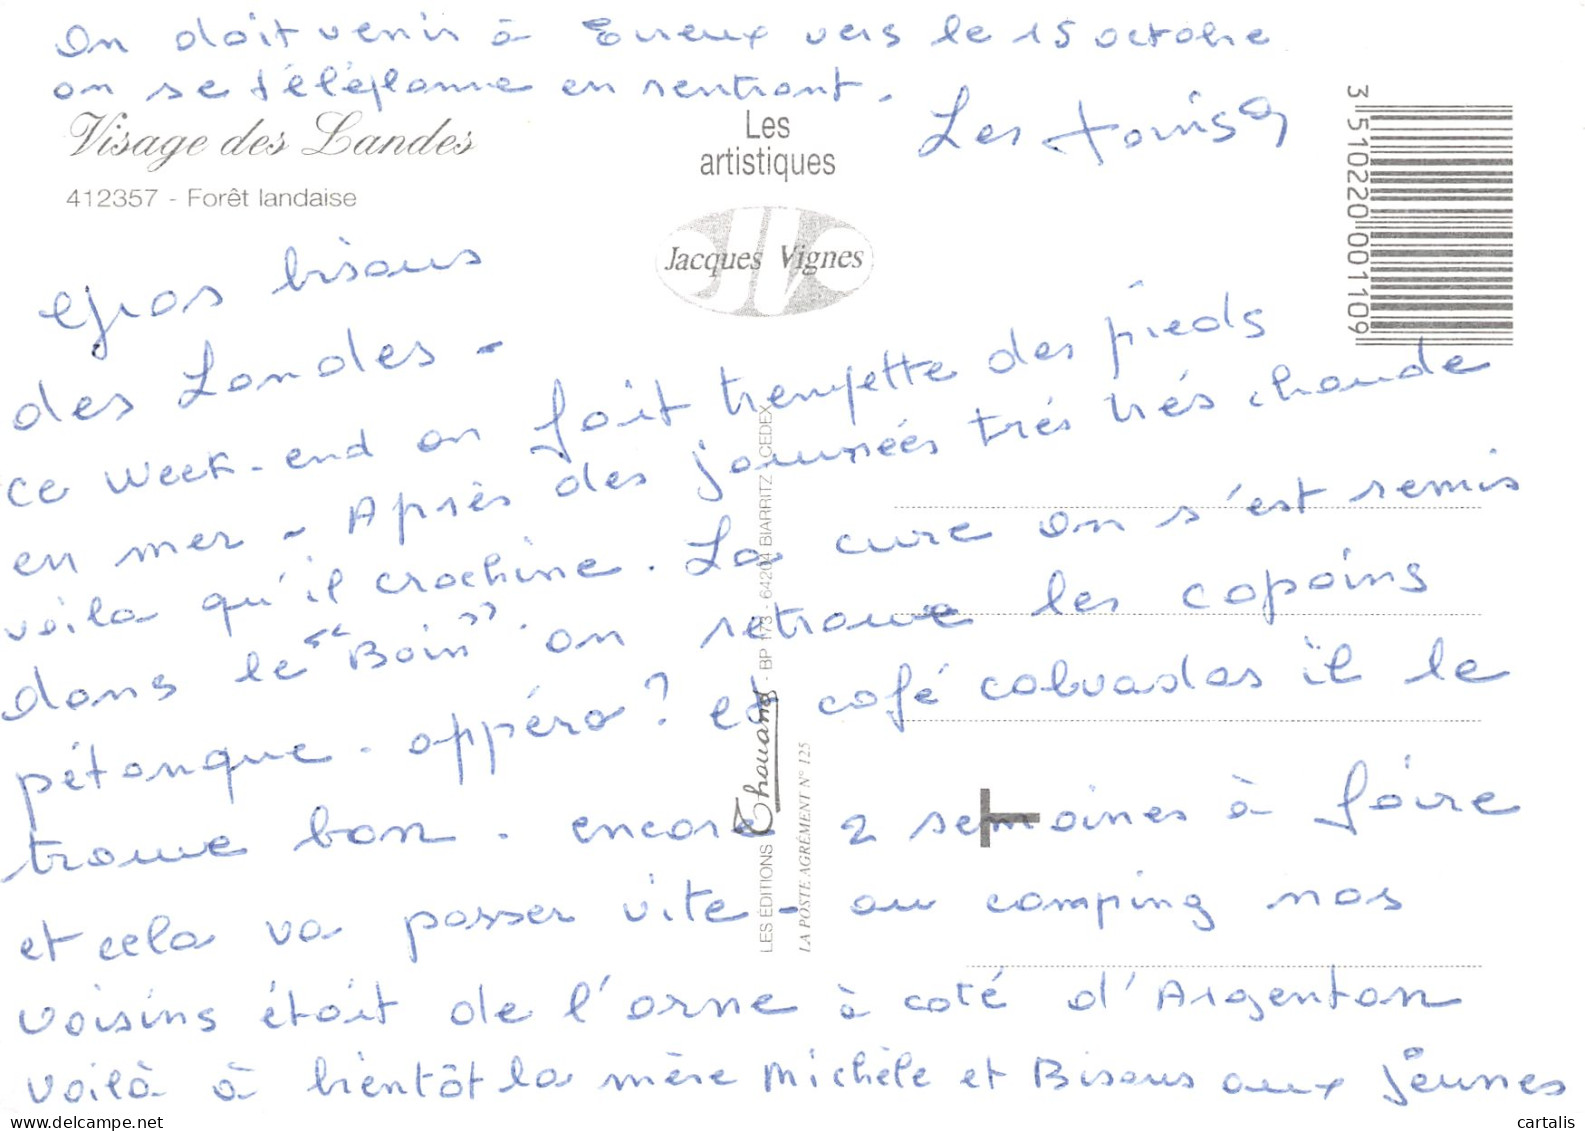 On doit venir à Evreux vers le 15 octobre
on se téléphonne en rentrant.
Les
Visage des Landes
412357 - Forêt landaise
Les
artistiques
Jacques Vignes
3 510220 001109
Gros bisous
des Landes -
ce week-end on fait trempette des pieds
en mer - Après des journées très très chaude
voila qu'il crachine. La cure on s'est remis
dans le "Bain" on retrouve les copains
pétanque. appéro? et café calvados il le
trouve bon. encore 2 semaines à faire
et cela va passer vite - au camping nos
voisins étoit de l'orne à coté d'Argentan
voilà à bientôt la mère Michèle et Bisous aux jeunes
LES EDITIONS Thouand - BP 173 - 64204 BIARRITZ CEDEX
LA POSTE AGRÉMENT N° 125
T
www.delcampe.net
cartalis